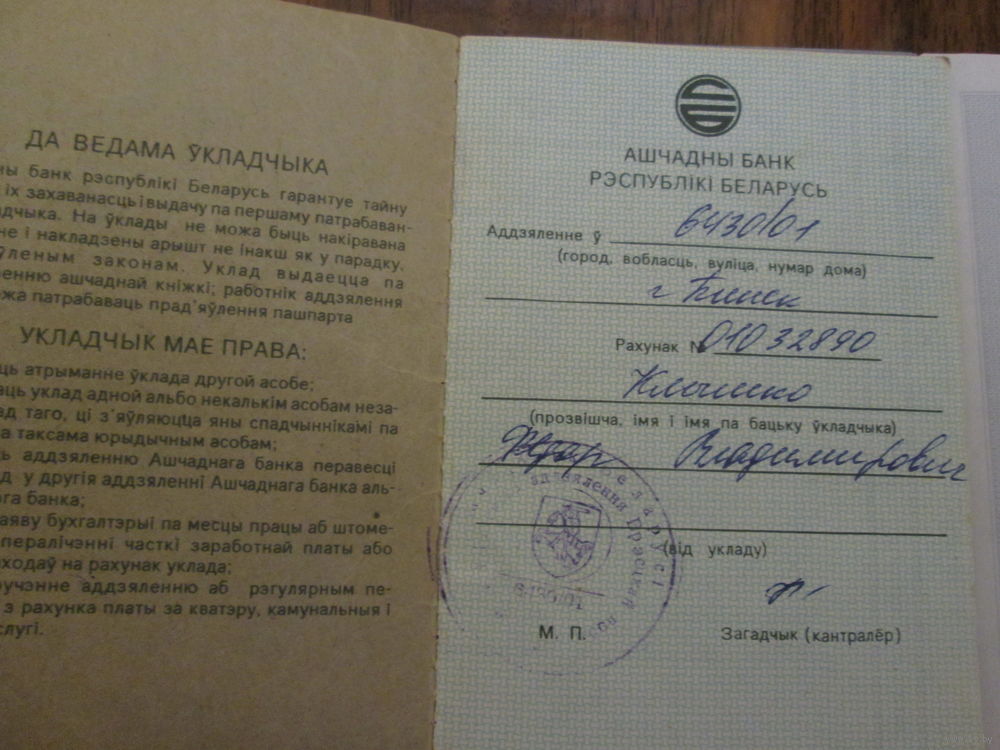 ДА ВЕДАМА ЎКЛАДЧЫКА
ны банк рэспублікі Беларусь гарантуе тайну
іх захаванасць і выдачу па першаму патрабаван-
дчыка. На ўклады не можа быць накіравана
не і накладзены арышт не інакш як у парадку,
ўленым законам. Уклад выдаецца па
ленню ашчаднай кніжкі; работнік аддзялення
жа патрабаваць прад'яўлення пашпарта
УКЛАДЧЫК МАЕ ПРАВА:
ць атрыманне ўклада другой асобе;
аць уклад адной альбо некалькім асобам неза-
ад таго, ці з'яўляюцца яны спадчыннікамі па
а таксама юрыдычным асобам;
ь аддзяленню Ашчаднага банка перавесці
д у другія аддзяленні Ашчаднага банка аль-
ога банка;
заяву бухгалтэрыі па месцы працы аб штоме-
пералічэнні часткі заработнай платы або
ходаў на рахунак уклада;
ручэнне аддзяленню аб рэгулярным пе-
з рахунка платы за кватэру, камунальныя і
слугі.
АШЧАДНЫ БАНК
РЭСПУБЛІКІ БЕЛАРУСЬ
Аддзяленне ў 6430/01
(город, вобласць, вуліца, нумар дома)
г Пинск
Рахунак № 01032890
(прозвішча, імя і імя па бацьку ўкладчыка)
Владимирович
(від укладу)
М. П.
Загадчык (кантралёр)